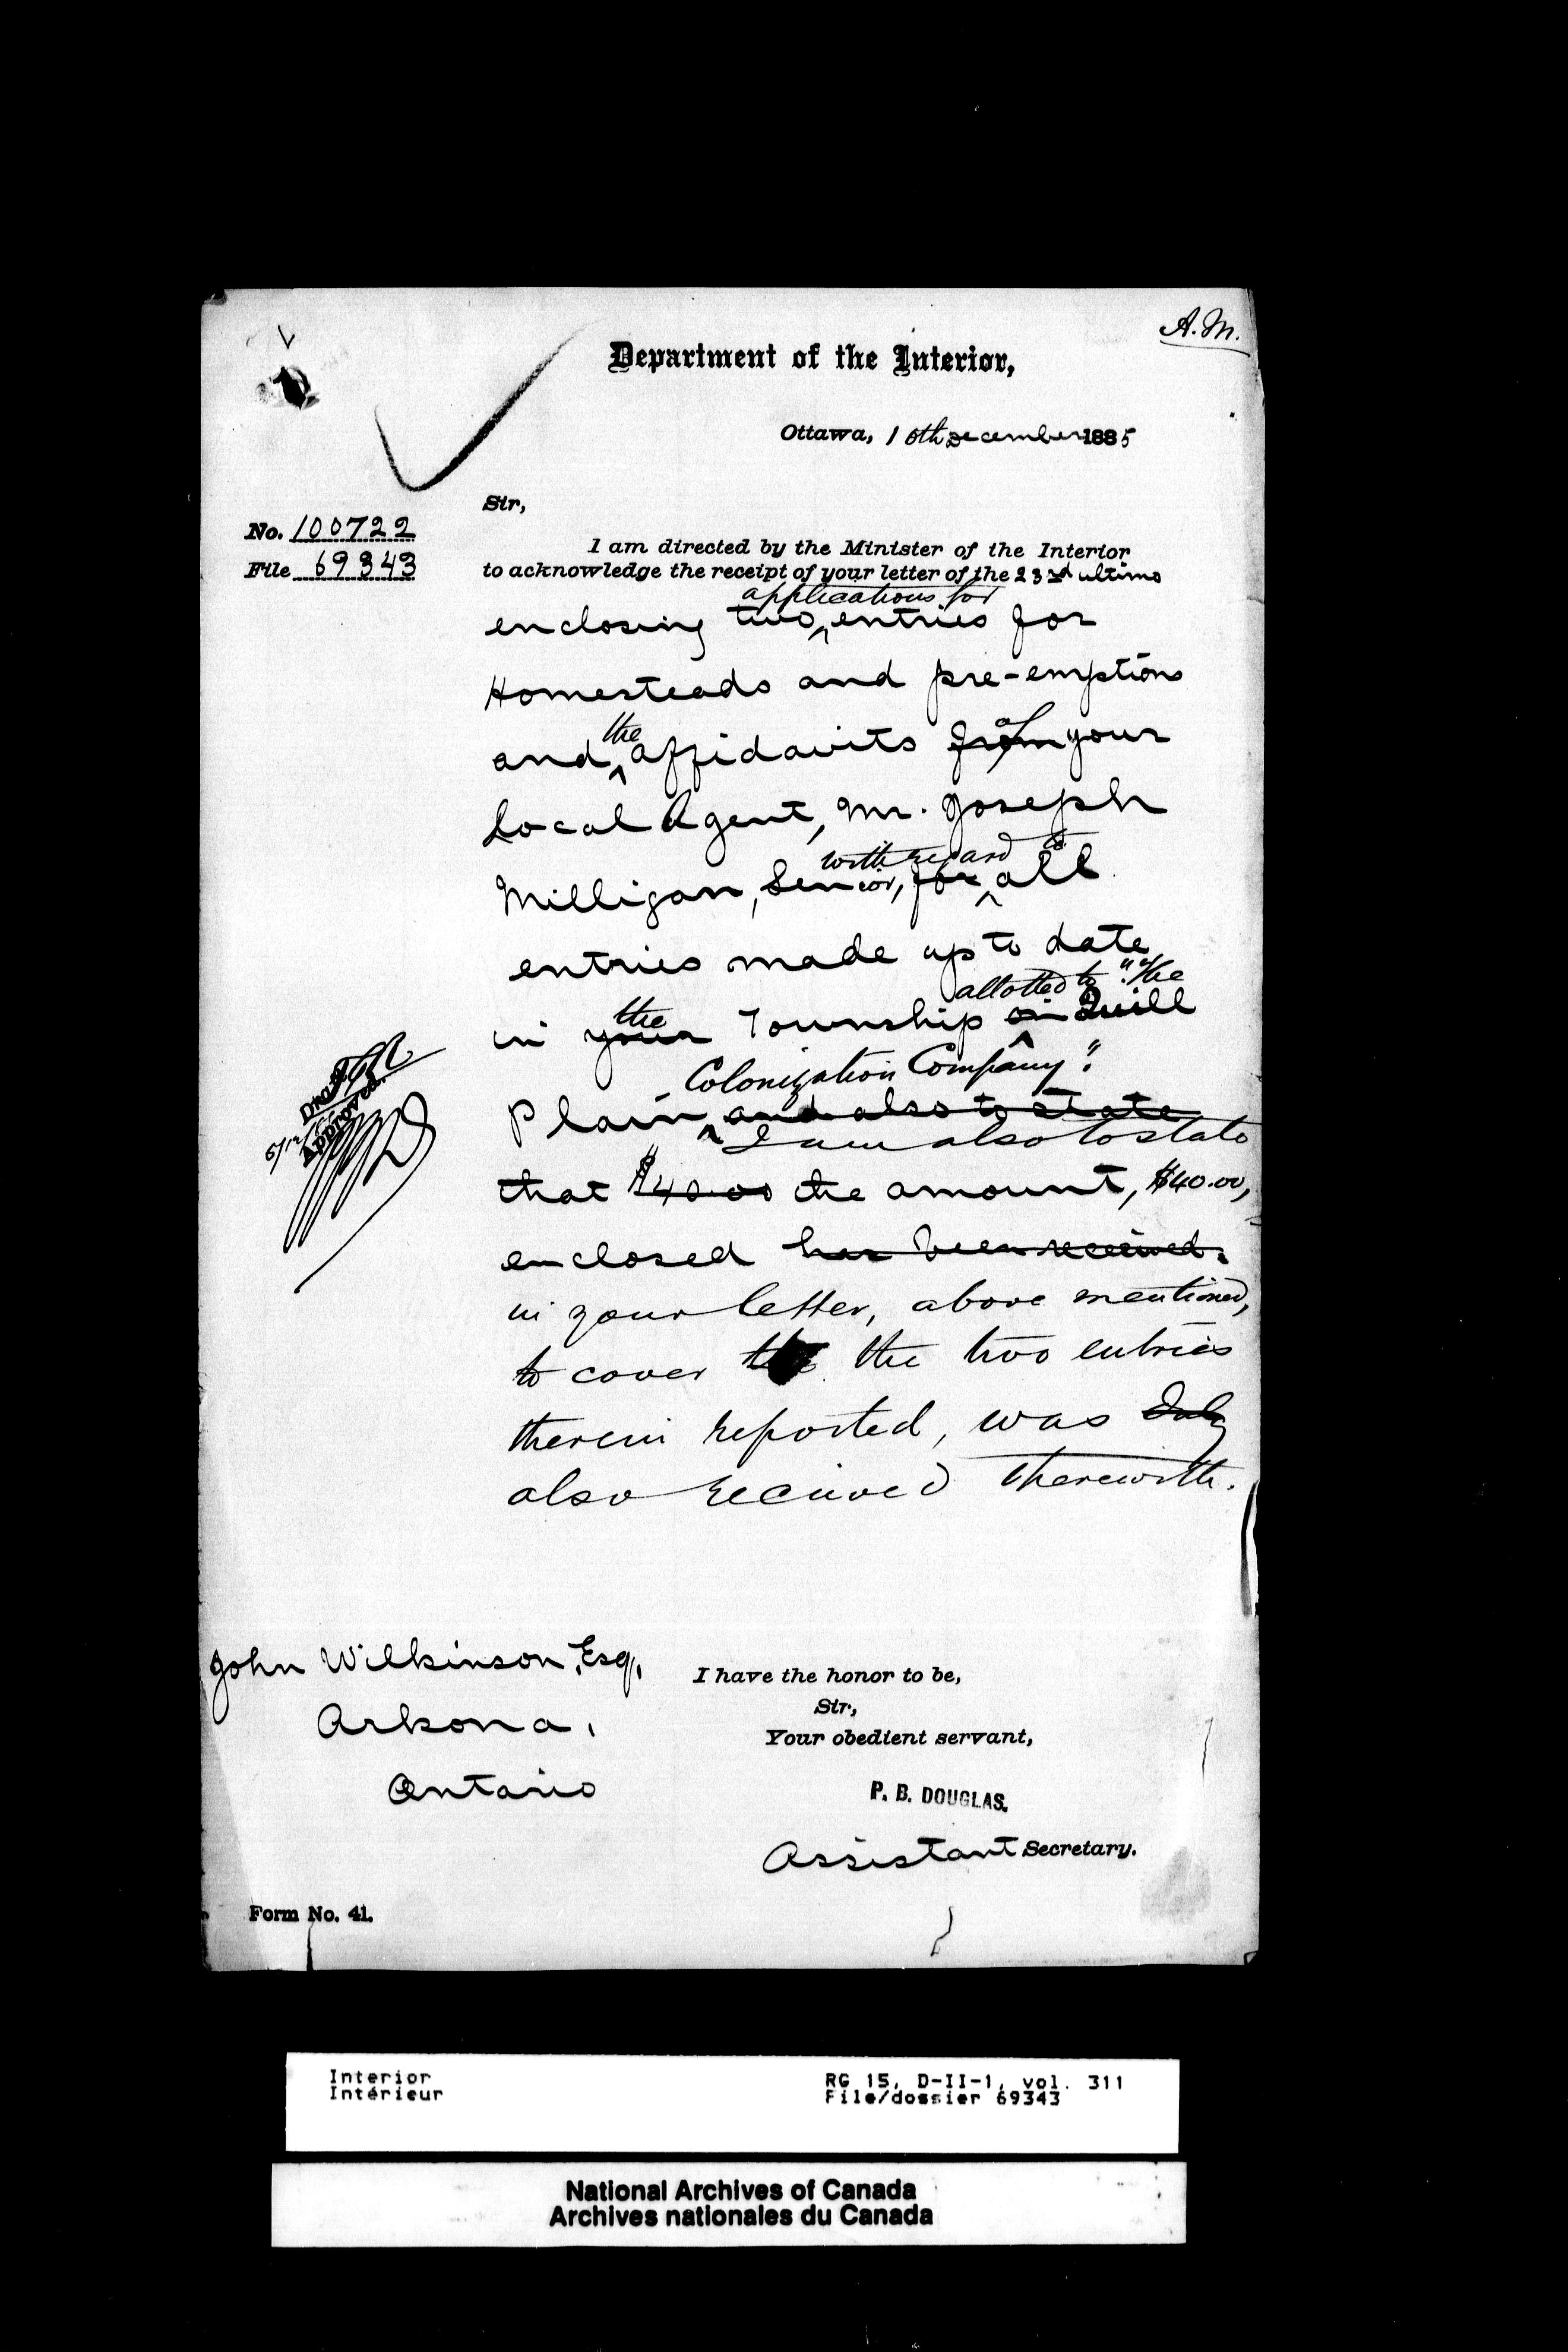 A.M.
Department of the Interior,
Ottawa, 10th December 1885
Sir,
No. 100722
File 69343
I am directed by the Minister of the Interior
to acknowledge the receipt of your letter of the 23rd ultimo
applications for
enclosing two entries for
Homesteads and pre-emptions
the of
and affidavits from your
Local Agent, Mr. Joseph
with regard to
Milligan, Senior, for all
entries made up to date
allotted to "The
the
in your Township on Quill
Colonization Company".
Plain and also to state
I am also to state
that $40.00 the amount, $40.00,
enclosed has been received.
in your letter, above mentioned,
to cover the the two entries
therein reported, was duly
also received therewith.
Draft
Approved.
John Wilkinson, Esq,
Arkona,
Ontario
I have the honor to be,
Sir,
Your obedient servant,
P. B. DOUGLAS.
Assistant Secretary.
Form No. 41.
Interior
Intérieur
RG 15, D-II-1, vol. 311
File/dossier 69343
National Archives of Canada
Archives nationales du Canada